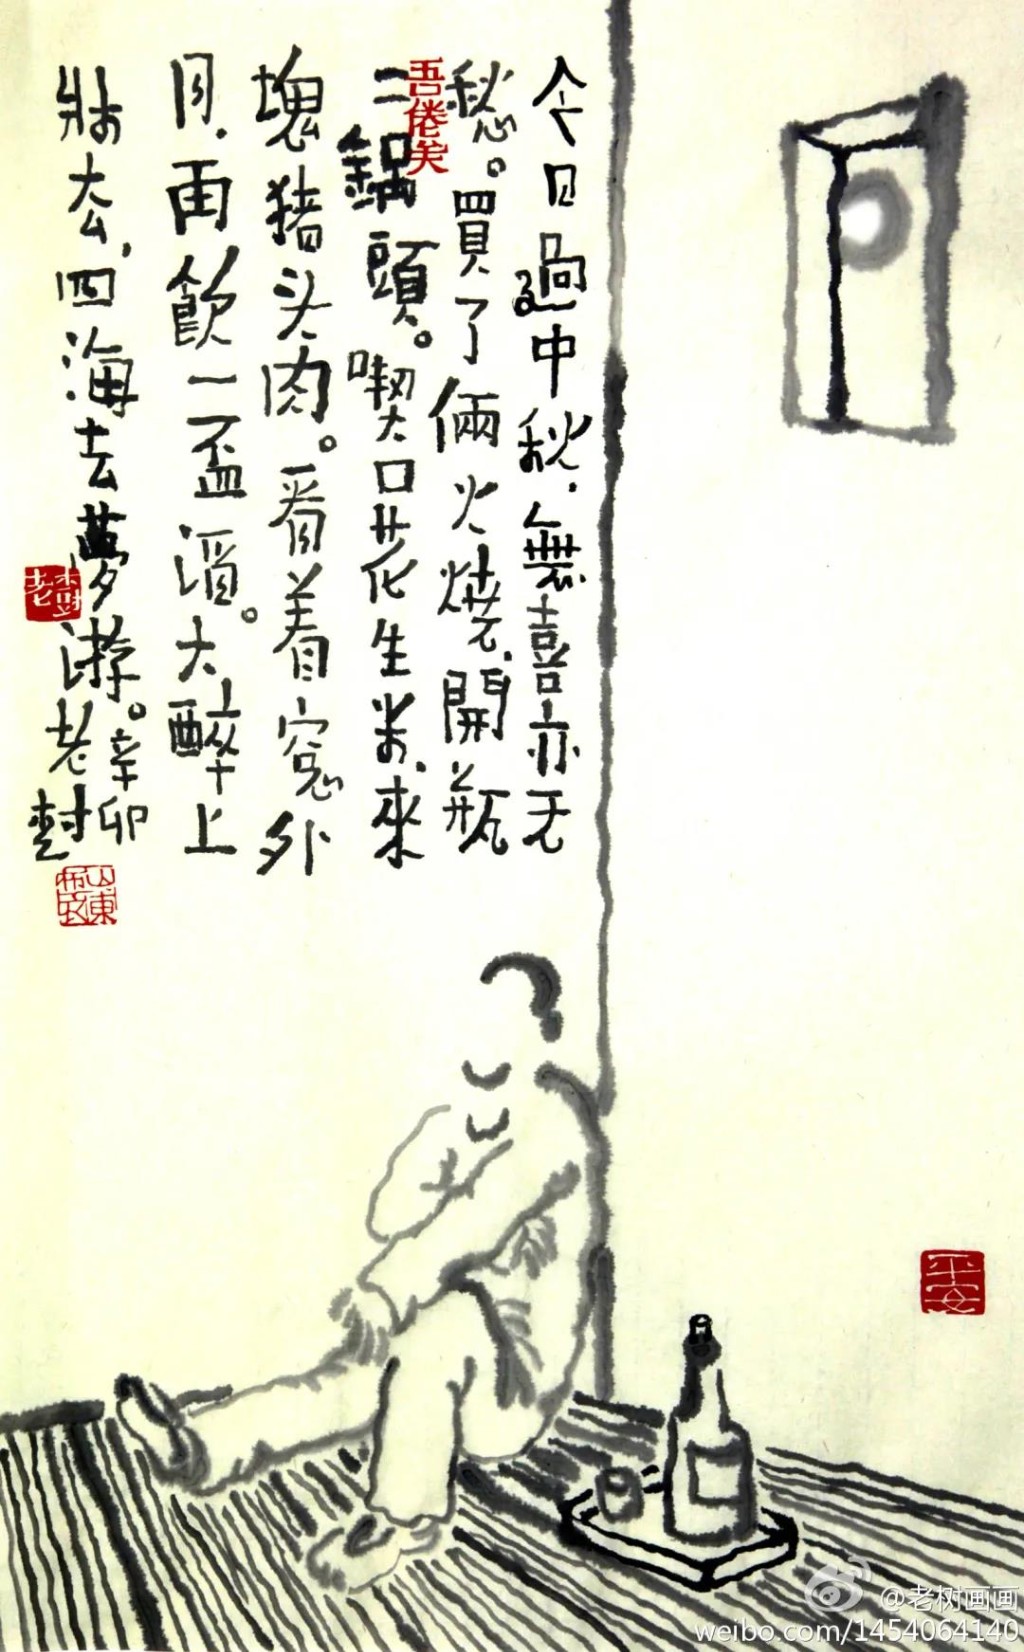 今日過中秋,無喜亦无
愁。買了倆火燒,開瓶
二鍋頭。喫口花生米,來
塊猪头肉。看着窓外
月,再飲一盃酒。大醉上
牀去,四海去夢游。辛卯
老樹
吾倦矣
老樹
山東
平安
@老树画画
weibo.com/1454064140